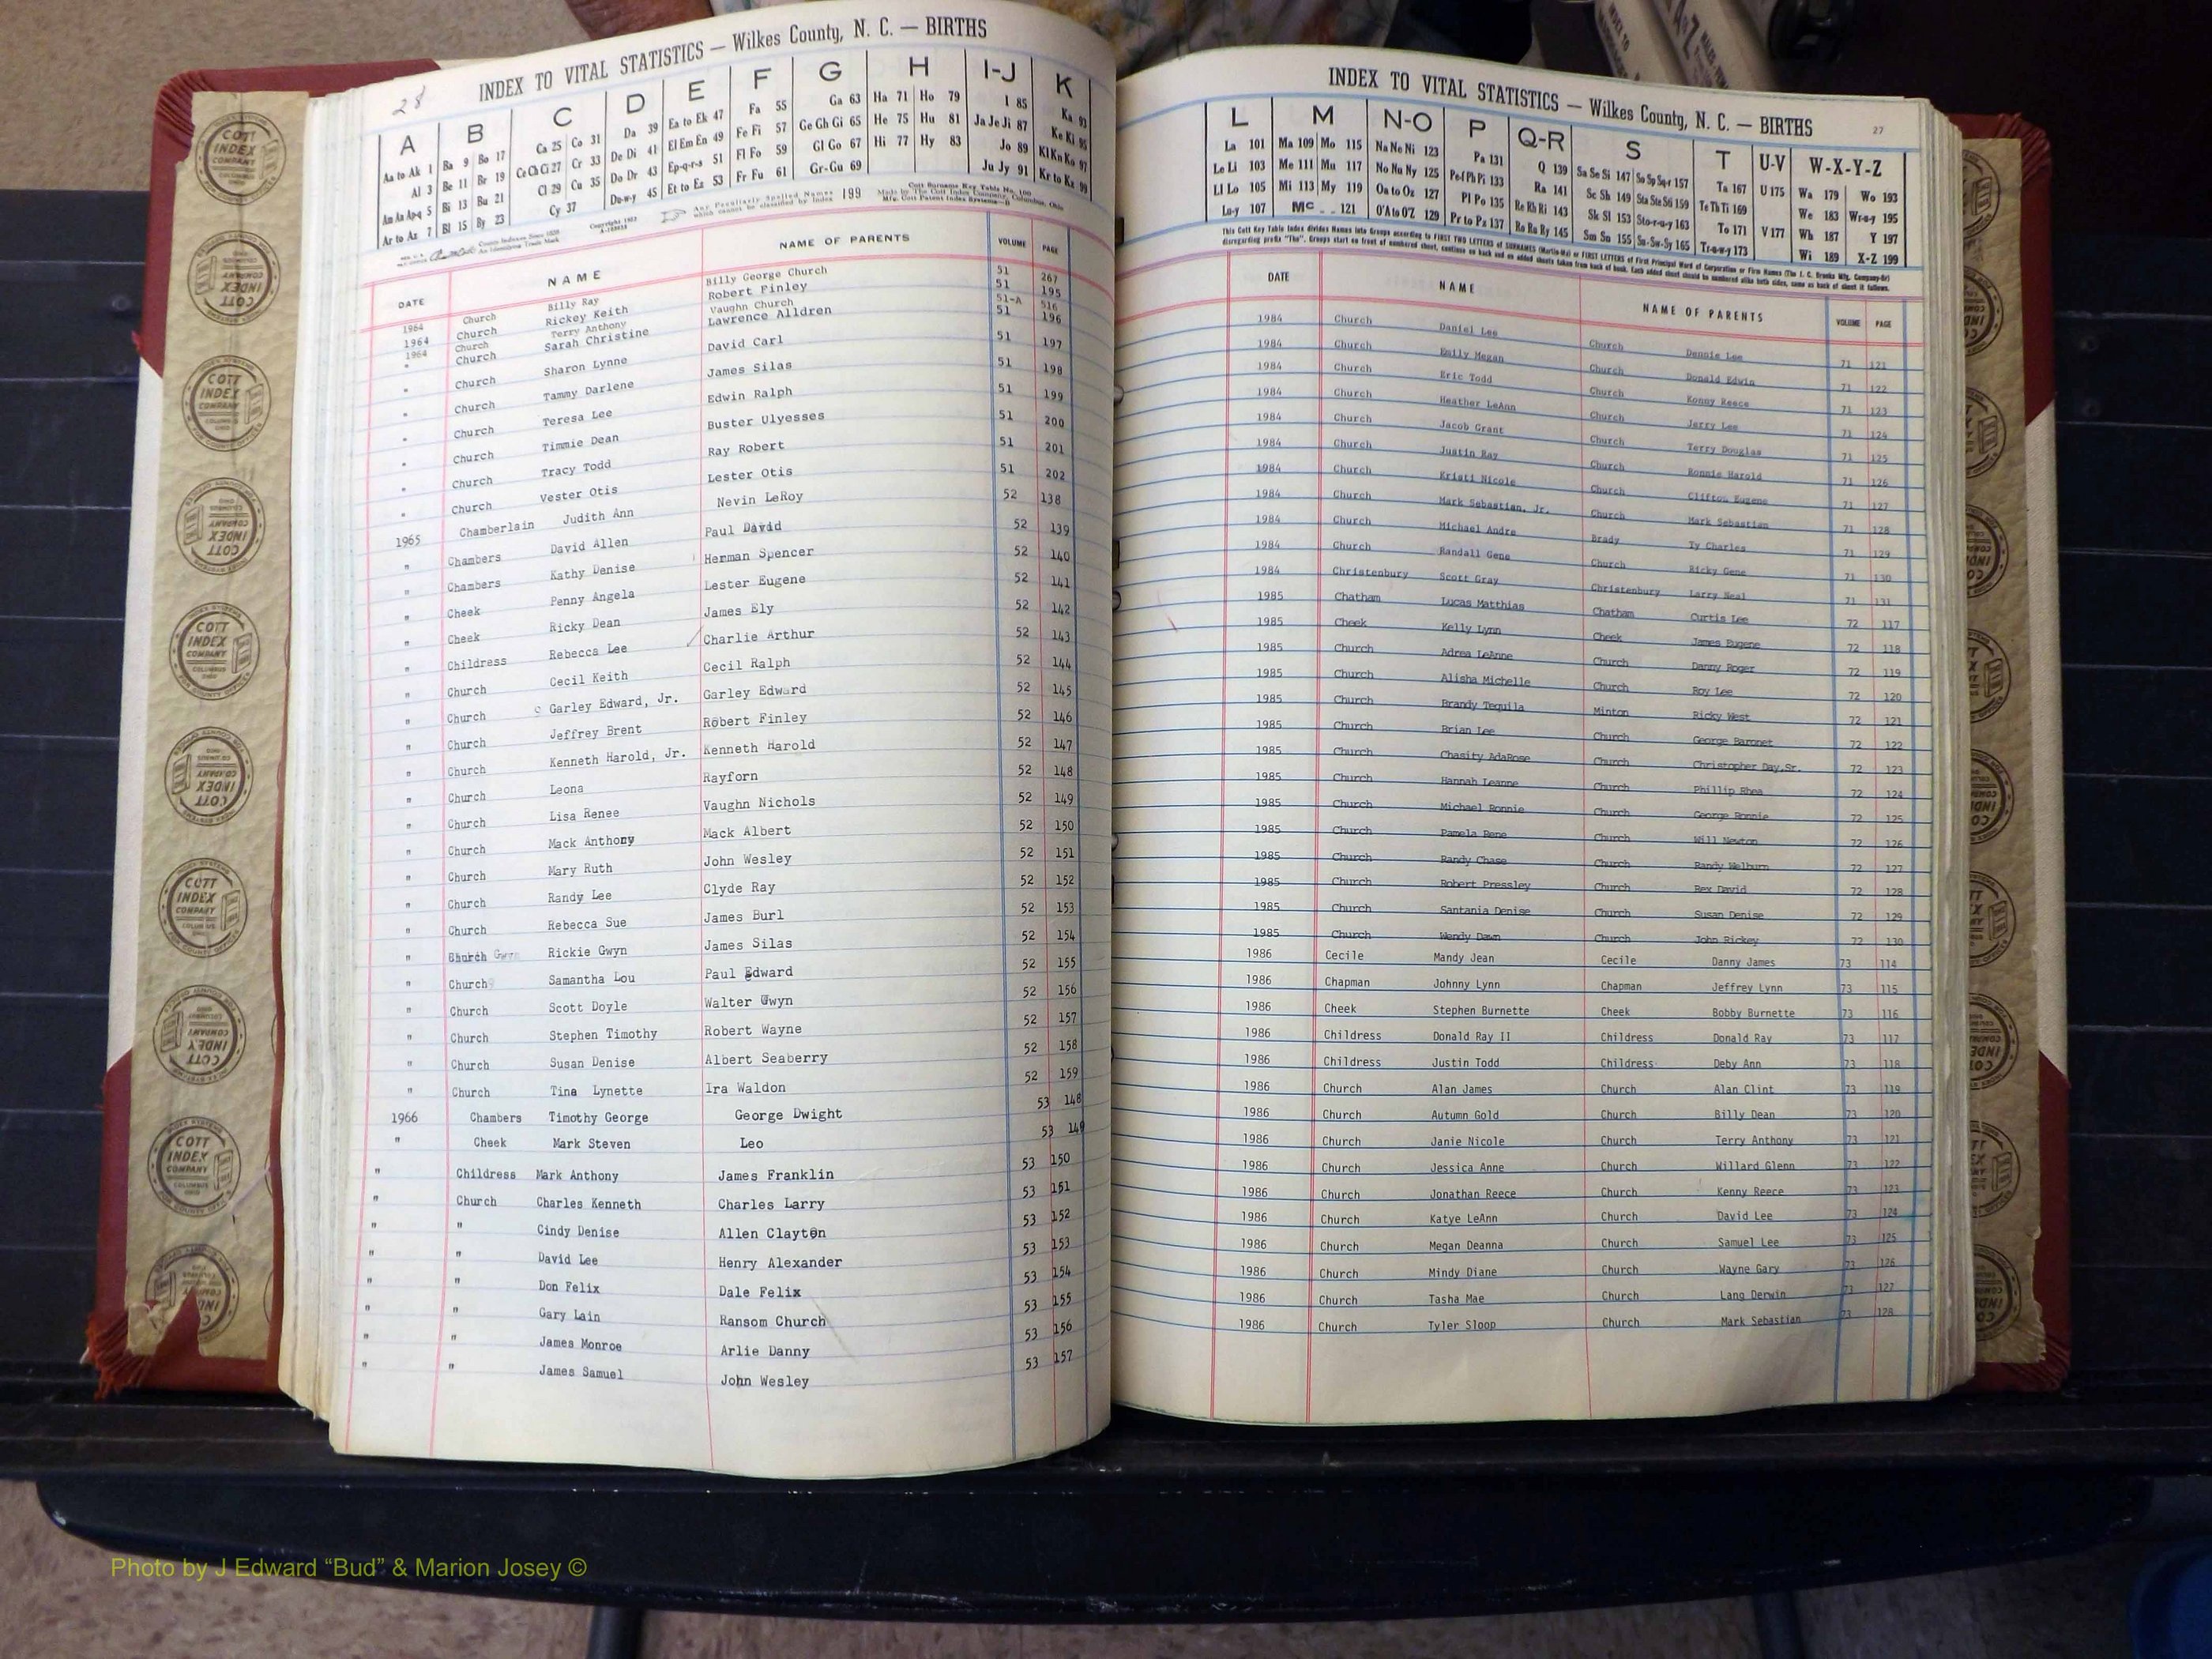 28
INDEX TO VITAL STATISTICS — Wilkes County, N. C. — BIRTHS
A B C D E F G H I-J K
Aa to Ak 1 Ba 9 Bo 17 Ca 25 Co 31 Da 39 Ea to Ek 47 Fa 55 Ga 63 Ha 71 Ho 79 I 85 Ka 93
Al 3 Be 11 Br 19 Ce Ch Ci 27 Cr 33 De Di 41 El Em En 49 Fe Fi 57 Ge Gh Gi 65 He 75 Hu 81 Ja Je Ji 87 Ke Ki 95
Am An Ap-q 5 Bi 13 Bu 21 Cl 29 Cu 35 Do Dr 43 Ep-q-r-s 51 Fl Fo 59 Gl Go 67 Hi 77 Hy 83 Jo 89 Kl Kn Ko 97
Ar to Az 7 Bl 15 By 23 Cy 37 Du-w-y 45 Et to Ez 53 Fr Fu 61 Gr-Gu 69 Ju Jy 91 Kr to Kz 99
Any Peculiarly Spelled Names which cannot be classified by Index 199
DATE NAME NAME OF PARENTS VOLUME PAGE
1964 Church Billy Ray Billy George Church 51 267
1964 Church Rickey Keith Robert Finley 51 195
1964 Church Terry Anthony Vaughn Church 51-A 516
" Church Sarah Christine Lawrence Alldren 51 196
" Church Sharon Lynne David Carl 51 197
" Church Tammy Darlene James Silas 51 198
" Church Teresa Lee Edwin Ralph 51 199
" Church Timmie Dean Buster Ulyesses 51 200
" Church Tracy Todd Ray Robert 51 201
" Church Vester Otis Lester Otis 51 202
1965 Chamberlain Judith Ann Nevin LeRoy 52 138
" Chambers David Allen Paul David 52 139
" Chambers Kathy Denise Herman Spencer 52 140
" Cheek Penny Angela Lester Eugene 52 141
" Cheek Ricky Dean James Ely 52 142
" Childress Rebecca Lee Charlie Arthur 52 143
" Church Cecil Keith Cecil Ralph 52 144
" Church Garley Edward, Jr. Garley Edward 52 145
" Church Jeffrey Brent Robert Finley 52 146
" Church Kenneth Harold, Jr. Kenneth Harold 52 147
" Church Leona Rayforn 52 148
" Church Lisa Renee Vaughn Nichols 52 149
" Church Mack Anthony Mack Albert 52 150
" Church Mary Ruth John Wesley 52 151
" Church Randy Lee Clyde Ray 52 152
" Church Rebecca Sue James Burl 52 153
" Church Rickie Gwyn James Silas 52 154
" Church Samantha Lou Paul Edward 52 155
" Church Scott Doyle Walter Gwyn 52 156
" Church Stephen Timothy Robert Wayne 52 157
" Church Susan Denise Albert Seaberry 52 158
" Church Tina Lynette Ira Waldon 52 159
1966 Chambers Timothy George George Dwight 53 148
" Cheek Mark Steven Leo 53 149
" Childress Mark Anthony James Franklin 53 150
" Church Charles Kenneth Charles Larry 53 151
" " Cindy Denise Allen Clayton 53 152
" " David Lee Henry Alexander 53 153
" " Don Felix Dale Felix 53 154
" " Gary Lain Ransom Church 53 155
" " James Monroe Arlie Danny 53 156
" " James Samuel John Wesley 53 157
INDEX TO VITAL STATISTICS — Wilkes County, N. C. — BIRTHS 27
L M N-O P Q-R S T U-V W-X-Y-Z
La 101 Ma 109 Mo 115 Na Ne Ni 123 Pa 131 Q 139 Sa Se Si 147 So Sp Sq-r 157 Ta 167 U 175 Wa 179 Wo 193
Le Li 103 Me 111 Mu 117 No Nu Ny 125 Pe-f Ph Pi 133 Ra 141 Sc Sh 149 Sta Ste Sti 159 Te Th Ti 169 We 183 Wr-u-y 195
Ll Lo 105 Mi 113 My 119 Oa to Oz 127 Pl Po 135 Re Rh Ri 143 Sk Sl 153 Sto-r-u-y 163 To 171 V 177 Wh 187 Y 197
Lu-y 107 Mc 121 O'A to O'Z 129 Pr to Pu 137 Ro Ru Ry 145 Sm Sn 155 Su-Sw-Sy 165 Tr-u-w-y 173 Wi 189 X-Z 199
DATE NAME NAME OF PARENTS VOLUME PAGE
1984 Church Daniel Lee Church Dennis Lee 71 121
1984 Church Emily Megan Church Donald Edwin 71 122
1984 Church Eric Todd Church Konny Reece 71 123
1984 Church Heather LeAnn Church Jerry Lee 71 124
1984 Church Jacob Grant Church Terry Douglas 71 125
1984 Church Justin Ray Church Ronnie Harold 71 126
1984 Church Kristi Nicole Church Clifton Eugene 71 127
1984 Church Mark Sebastian, Jr. Church Mark Sebastian 71 128
1984 Church Michael Andre Brady Ty Charles 71 129
1984 Church Randall Gene Church Ricky Gene 71 130
1984 Christenbury Scott Gray Christenbury Larry Neal 71 131
1985 Chatham Lucas Matthias Chatham Curtis Lee 72 117
1985 Cheek Kelly Lynn Cheek James Eugene 72 118
1985 Church Adrea LeAnne Church Danny Roger 72 119
1985 Church Alisha Michelle Church Roy Lee 72 120
1985 Church Brandy Tequila Minton Ricky West 72 121
1985 Church Brian Lee Church George Baronet 72 122
1985 Church Chasity AdaRose Church Christopher Day, Sr. 72 123
1985 Church Hannah Leanne Church Phillip Rhea 72 124
1985 Church Michael Ronnie Church George Ronnie 72 125
1985 Church Pamela Rene Church Will Newton 72 126
1985 Church Randy Chase Church Randy Welburn 72 127
1985 Church Robert Pressley Church Rex David 72 128
1985 Church Santania Denise Church Susan Denise 72 129
1985 Church Wendy Dawn Church John Rickey 72 130
1986 Cecile Mandy Jean Cecile Danny James 73 114
1986 Chapman Johnny Lynn Chapman Jeffrey Lynn 73 115
1986 Cheek Stephen Burnette Cheek Bobby Burnette 73 116
1986 Childress Donald Ray II Childress Donald Ray 73 117
1986 Childress Justin Todd Childress Deby Ann 73 118
1986 Church Alan James Church Alan Clint 73 119
1986 Church Autumn Gold Church Billy Dean 73 120
1986 Church Janie Nicole Church Terry Anthony 73 121
1986 Church Jessica Anne Church Willard Glenn 73 122
1986 Church Jonathan Reece Church Kenny Reece 73 123
1986 Church Katye LeAnn Church David Lee 73 124
1986 Church Megan Deanna Church Samuel Lee 73 125
1986 Church Mindy Diane Church Wayne Gary 73 126
1986 Church Tasha Mae Church Lang Derwin 73 127
1986 Church Tyler Sloop Church Mark Sebastian 73 128
COTT INDEX COMPANY
Photo by J Edward “Bud” & Marion Josey ©